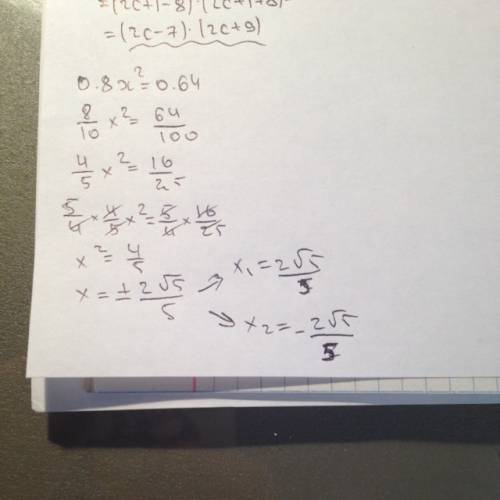 =(2c+1-8)·(2c+1+8)
=(2c-7)·(2c+9)
0.8x²=0.64
8/10 x²= 64/100
4/5 x²= 16/25
5/4 × 4/5 x²= 5/4 × 16/25
x²= 4/5
x=± 2√5/5 → x₁= 2√5/5
→ x₂=- 2√5/5